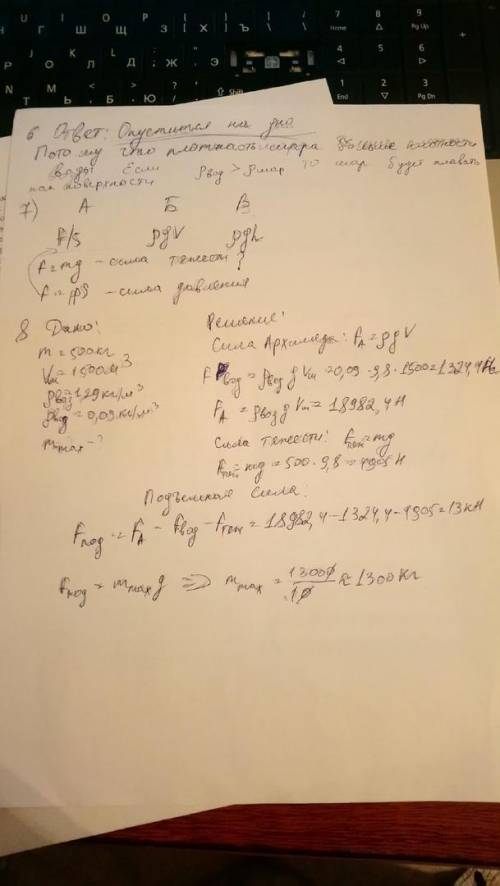 6 Ответ: Опустится на дно
Потому что плотность шара больше плотности
воды Если ρвод > ρшар то шар будет плавать
на поверхности
7) А Б В
F/S ρgV ρgh
F=mg – сила тяжести?
F=pS – сила давления
8 Дано:
m = 500 кг
Vш = 1500 м³
ρвоз = 1,29 кг/м³
ρвод = 0,09 кг/м³
mmax – ?
Решение:
Сила Архимеда: FA = ρgV
Fвод = ρвод g Vш = 0,09 · 9,8 · 1500 = 1324,4 Н
FA = ρвоз g Vш = 18982,4 Н
Сила тяжести: = mg
= mg = 500 · 9,8 = 4905 Н
Подъемная сила:
Fпод = FA – Fвод – = 18982,4 – 1324,4 – 4905 = 13 кН
Fпод = mmax g => mmax = 13000/10 ≈ 1300 кг